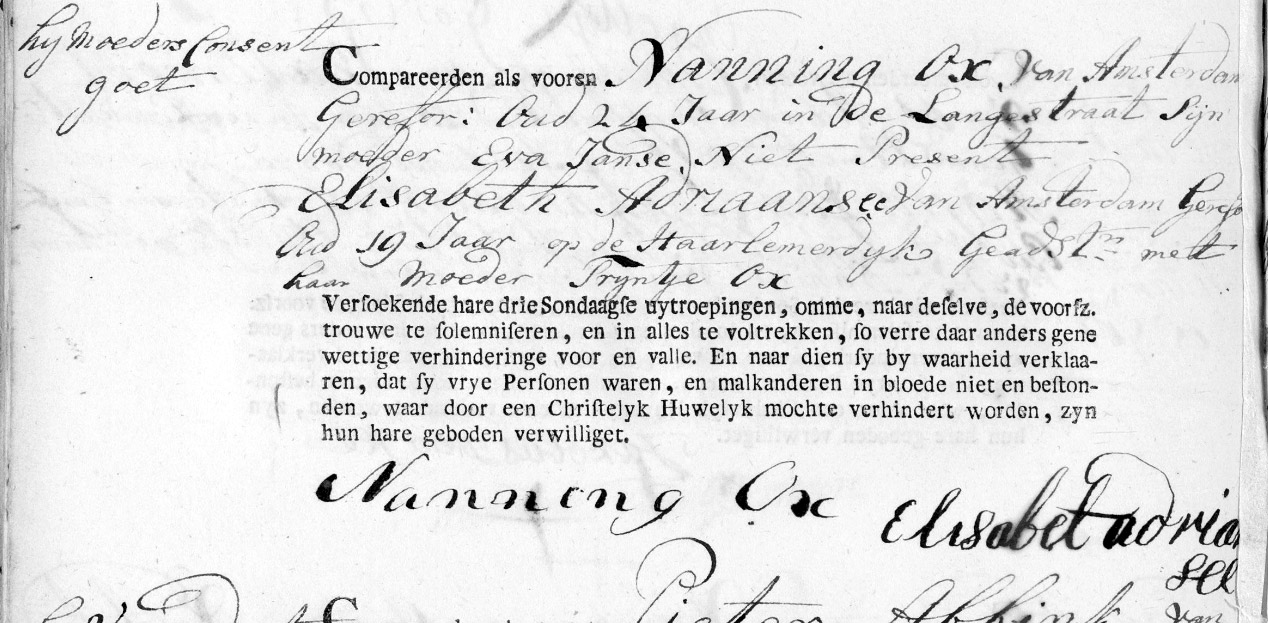 hy Moeders Consent
goet
Compareerden als vooren Nanning Ox, van Amsterdam
Gerefor: Oud 24 Jaar in de Langestraat Sijn
moeder Eva Janse, Niet Present
Elisabeth Adriaansee van Amsterdam Geref
Oud 19 Jaar op de Haarlemerdyk Geadstn met
haar Moeder Tryntje Ox
Verſoekende hare drie Sondaagſe uytroepingen, omme, naar deſelve, de voorſz.
trouwe te ſolemniſeren, en in alles te voltrekken, ſo verre daar anders gene
wettige verhinderinge voor en valle. En naar dien ſy by waarheid verklaa-
ren, dat ſy vrye Perſonen waren, en malkanderen in bloede niet en beſton-
den, waar door een Chriſtelyk Huwelyk mochte verhindert worden, zyn
hun hare geboden verwilliget.
Nanneng Ox
Elisabet adrian
see
Pieter
van